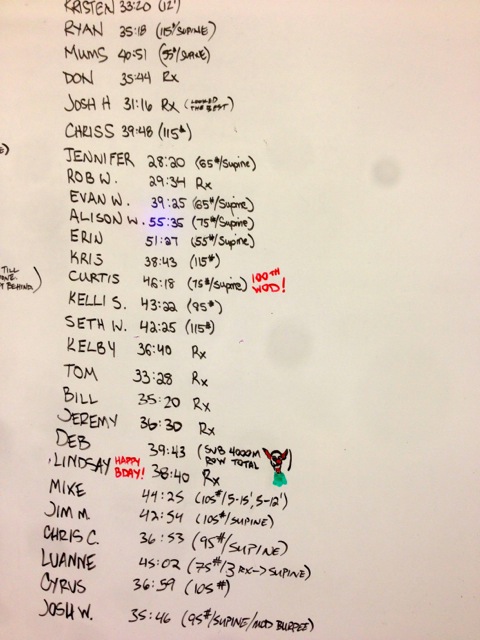 KRISTEN 33:20 (12')
RYAN 35:18 (115#/SUPINE)
MUMS 40:51 (55#/SUPINE)
DON 35:44 Rx
JOSH H 31:16 Rx (LOOKED THE BEST)
CHRIS S 39:48 (115#)
JENNIFER 28:20 (65#/Supine)
ROB W. 29:34 Rx
EVAN W. 39:25 (65#/Supine)
ALISON W. 55:35 (75#/Supine)
ERIN 51:27 (55#/Supine)
KRIS 38:43 (115#)
TILL
CURTIS 46:18 (75#/Supine) 100TH WOD!
BEHIND)
KELLI S. 43:22 (95#)
SETH W. 42:25 (115#)
KELBY 36:40 Rx
TOM 33:28 Rx
BILL 35:20 Rx
JEREMY 36:30 Rx
DEB 39:43 (SUB 4000M ROW TOTAL)
LINDSAY HAPPY BDAY! 38:40 Rx
MIKE 44:25 (105#/5-15', 5-12')
JIM M. 42:54 (105#/SUPINE)
CHRIS C. 36:53 (95#/SUPINE)
LUANNE 45:02 (75#/3 RX->SUPINE)
CYRUS 36:59 (105#)
JOSH W. 35:46 (95#/SUPINE/MOD BURPEE)